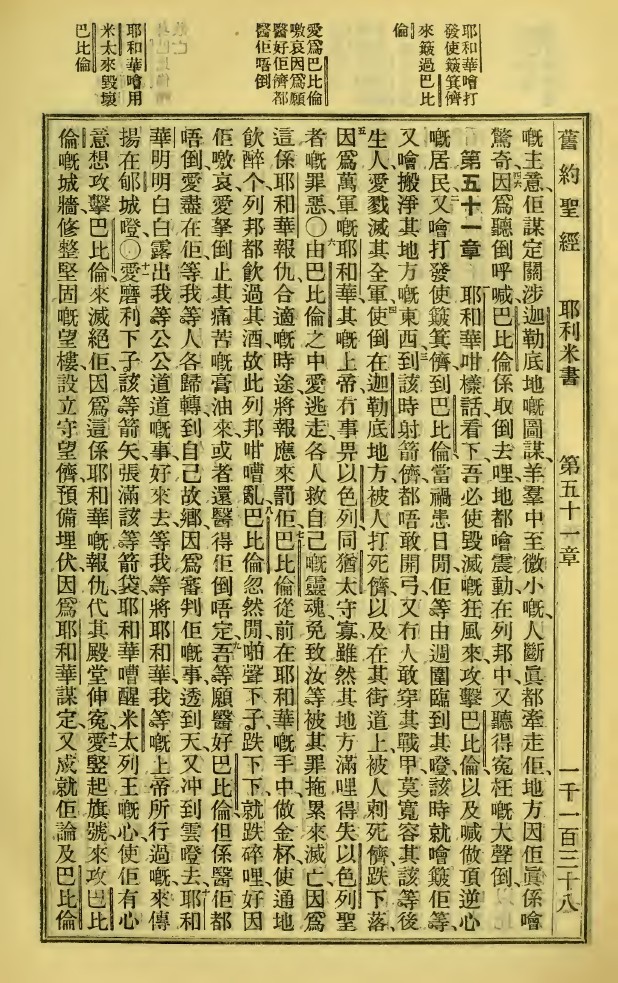 舊約聖經 耶利米書 第五十一章 一千一百三十八
耶和華噲打
發使簸箕儕
來簸過巴比
倫
愛為巴比倫
噭哀因為願
醫好佢濟都
醫佢唔倒
耶和華噲用
米太來毀壞
巴比倫
嘅主意佢謀定關涉迦勒底地嘅圖謀羊羣中至微小嘅人斷眞都牽走佢地方因佢眞係噲
驚奇四六因為聽倒呼喊巴比倫係取倒去哩地都噲震動在列邦中又聽得寃枉嘅大聲倒
第五十一章 耶和華咁樣話看下吾必使毀滅嘅狂風來攻擊巴比倫以及喊做頂逆心
嘅居民二又噲打發使簸箕儕到巴比倫當禍患日閒佢等由週圍臨到其噔該時就噲簸佢等
又噲搬淨其地方嘅東西三到該時射箭儕都唔敢開弓又冇人敢穿其戰甲莫寬容其該等後
生人愛戮滅其全軍四使倒在迦勒底地方被人打死儕以及在其街道上被人刺死儕跌下落
五因為萬軍嘅耶和華其嘅上帝冇事畀以色列同猶太守寡雖然其地方滿哩得失以色列聖
者嘅罪惡〇六由巴比倫之中愛逃走各人救自己嘅靈魂免致汝等被其罪拖累來滅亡因為
這係耶和華報仇合適嘅時途將報應來罰佢七巴比倫從前在耶和華嘅手中做金杯使通地
飲醉个列邦都飲過其酒故此列邦咁嘈亂八巴比倫忽然閒啪聲下子跌下下就跌碎哩好因
佢噭哀愛拏倒止其痛苦嘅膏油來或者還醫得佢倒唔定九吾等願醫好巴比倫但係醫佢都
唔倒愛盡在佢等我等人各歸轉到自己故鄉因為審判佢嘅事透到天又冲到雲噔去十耶和
華明明白白露出我等公公道道嘅事好來去等我等將耶和華我等嘅上帝所行過嘅來傳
揚在郇城噔〇十一愛磨利下子該等箭矢張滿該等箭袋耶和華嘈醒米太列王嘅心使佢有心
意想攻擊巴比倫來滅絕佢因為這係耶和華嘅報仇代其殿堂伸寃十二愛竪起旗號來攻巴比
倫嘅城牆修整堅固嘅望樓設立守望儕預備埋伏因為耶和華謀定又成就佢論及巴比倫